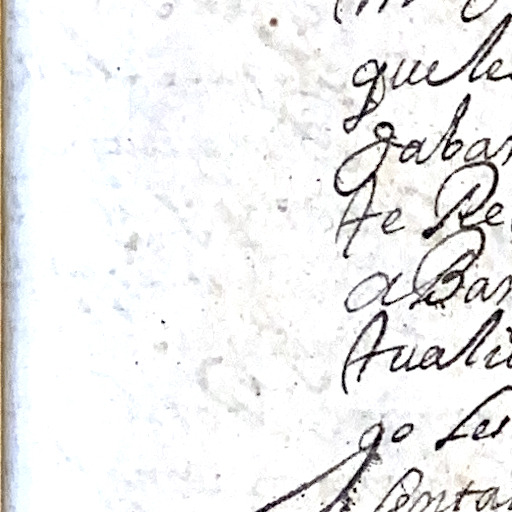 que le
gaban
te Re
a Bar
tuali
go su
senta